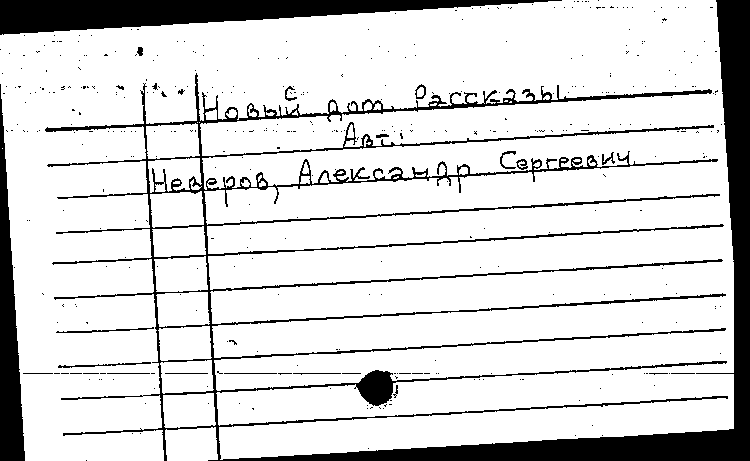 Новый дом. Рассказы.
Авт.:
Неверов, Александр Сергеевич.